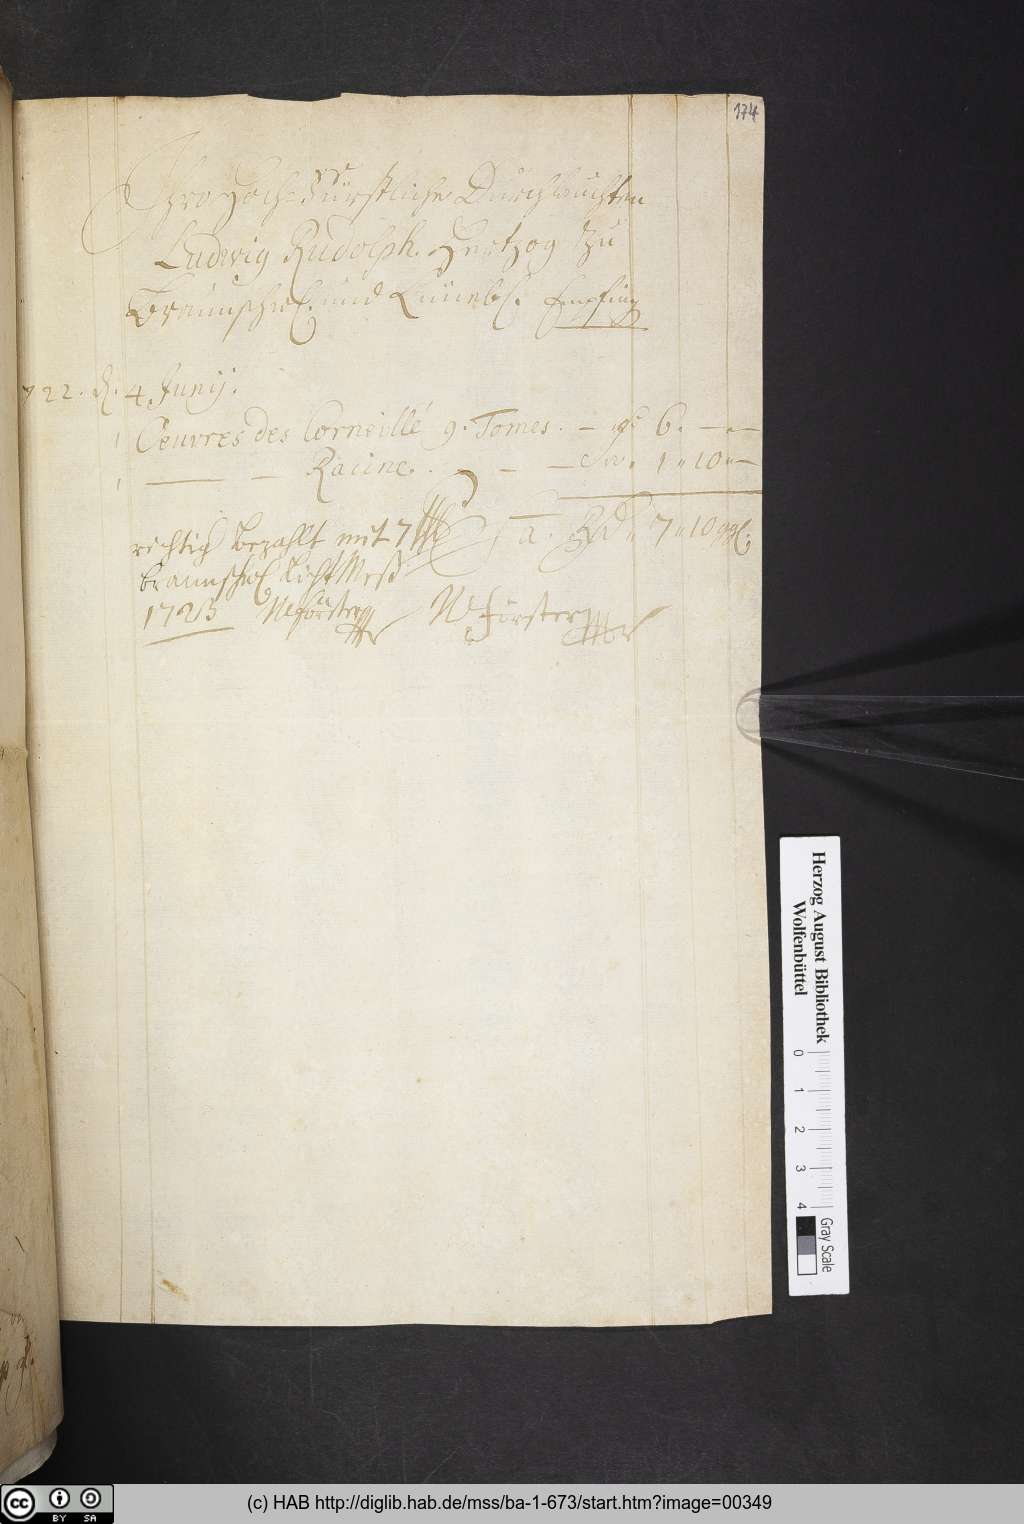 174
Ihro Hoch Fürstliche Durchlauchten
Ludwig Rudolph. Hertzog zu
Braunschw. und Lüneb. Empfing
722. d. 4. Junij.
1 Oeuvres des Corneille 9. Tomes. — 6. —
1 — — Racine. . — — — 1 " 10 " —
richtig bezahlt mit 7 Sa. 7 " 10 ggl.
braunschw Licht Meß
1723 NFörster N Förster
Herzog August Bibliothek
Wolfenbüttel
0 1 2 3 4
Gray Scale
cc BY SA
(c) HAB http://diglib.hab.de/mss/ba-1-673/start.htm?image=00349